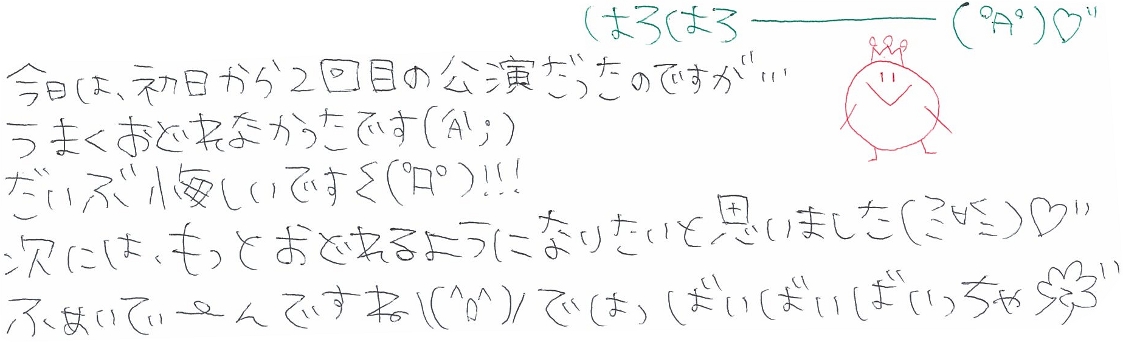 はろはろ———(°A°)♡"
今日は、初日から2回目の公演だったのですが…
うまくおどれなかったです(´A`;)
だいぶ悔しいですΣ(°Д°)!!!
次には、もっとおどれるようになりたいと思いました(≧∀≦)♡"
ふぁいてぃーんですね\(^o^)/では、ばいばいばいっちゃ